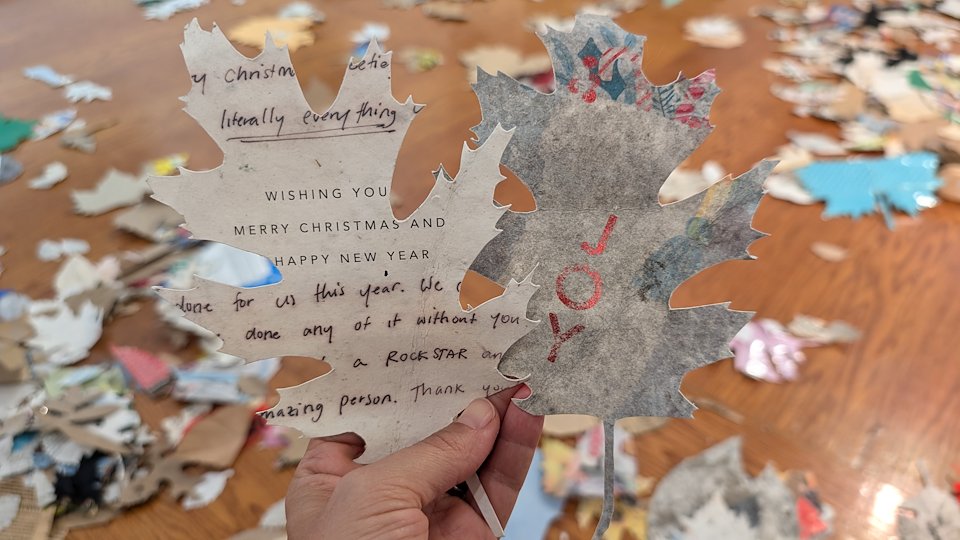 y Christm etie
literally everything
WISHING YOU
MERRY CHRISTMAS AND
HAPPY NEW YEAR
done for us this year. We c
done any of it without you
a ROCKSTAR an
mazing person. Thank you
JOY